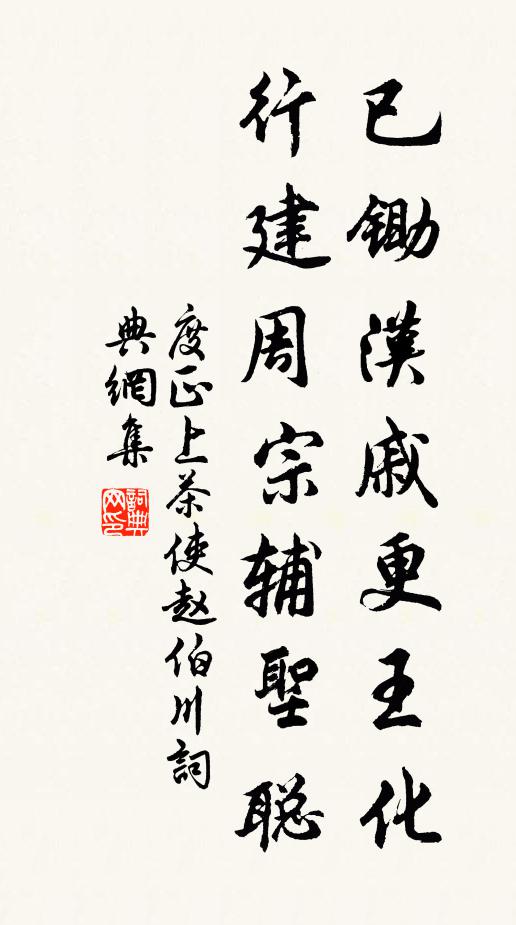 已鋤漢戚更王化
行建周宗辅聖聪
度正上茶使赵伯川詞
典網集
詞典网印